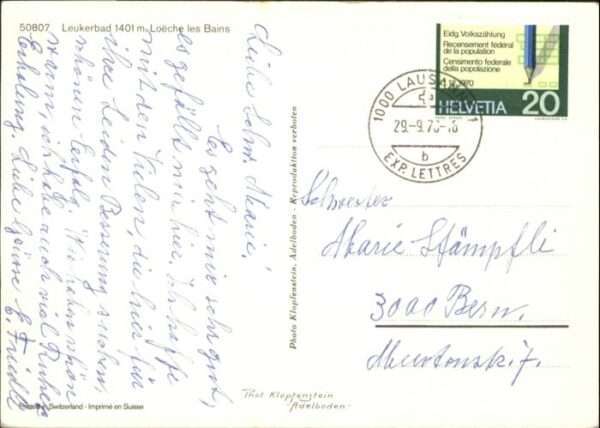 50807 Leukerbad 1401 m, Loèche les Bains
Liebe Schw. Marie!
Es geht mir sehr gut,
es gefällt mir hier. Ich hoffe
mit den Vielen, die hier für
ihre Leiden Besserung suchen,
schönen Erfolg. Wir haben schön
warm, ich habe auch viel Ruhe u.
Erholung. Liebe Grüsse E. Friedli
Switzerland - Imprimé en Suisse
Photo Klopfenstein, Adelboden - Reproduktion verboten
Phot Klopfenstein
Adelboden
Eidg. Volkszählung
Recensement fédéral
de la population
Censimento federale
della popolazione
1970
HELVETIA 20
1000 LAUSANNE 1
29.-9.70-16
b
EXP. LETTRES
Schwester
Marie Stämpfli
3000 Bern.
Murtenstr. 7.